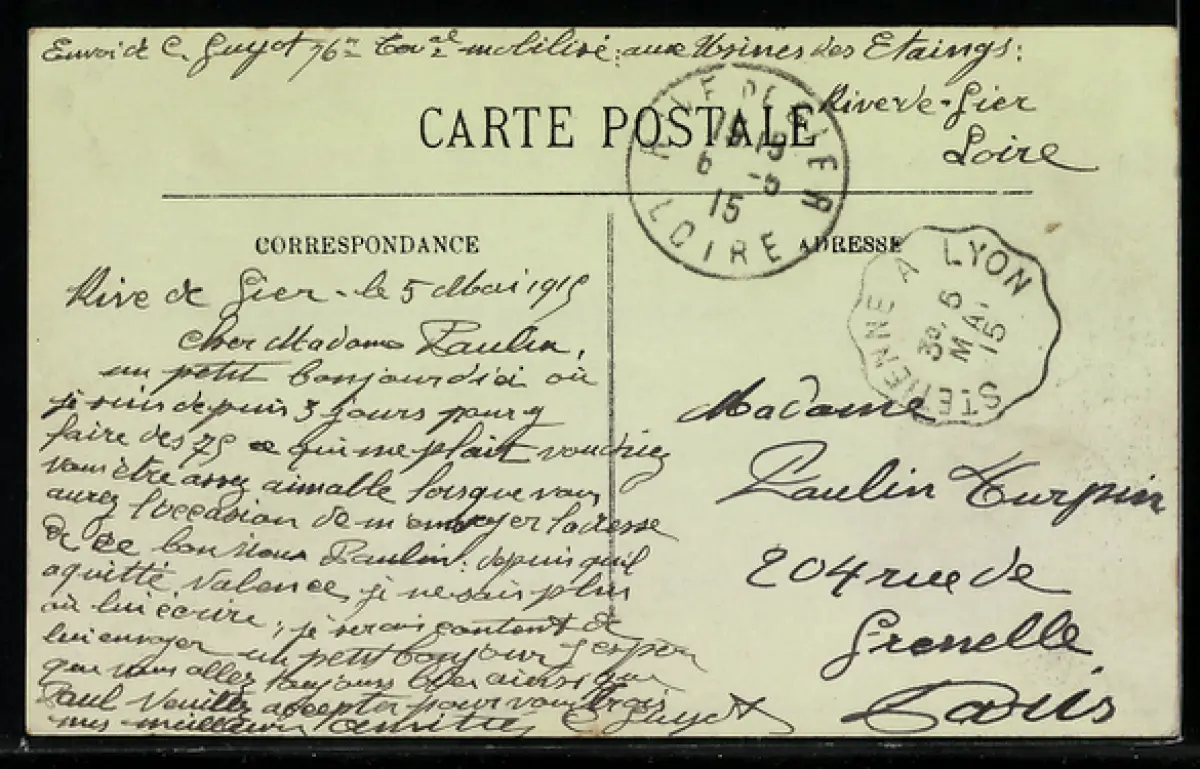 Envoi de C. Guyot 76e Teral mobilisé aux Usines des Etaings:
Rive de Gier
Loire
CARTE POSTALE
RIVE DE GIER
6 -5
15
LOIRE
CORRESPONDANCE
ADRESSE
ST ETIENNE A LYON
6
MAI
15
Rive de Gier - le 5 Mai 1915
Cher Madame Paulin,
un petit bonjour d'ici où
je suis depuis 3 jours pour y
faire des 75 ce qui me plait voudriez
vous être assez aimable lorsque vous
aurez l'occasion de m'envoyer l'adresse
de ce bon Paulin: depuis qu'il
a quitté Valence, je ne sais plus
où lui écrire, je serais content de
lui envoyer un petit bonjour j'espère
que vous allez toujours bien ainsi que
Paul Veuillez accepter pour vous trois
mes meilleures amitiés C Guyot
Madame
Paulin Turpin
204 rue de
Grenelle
Paris